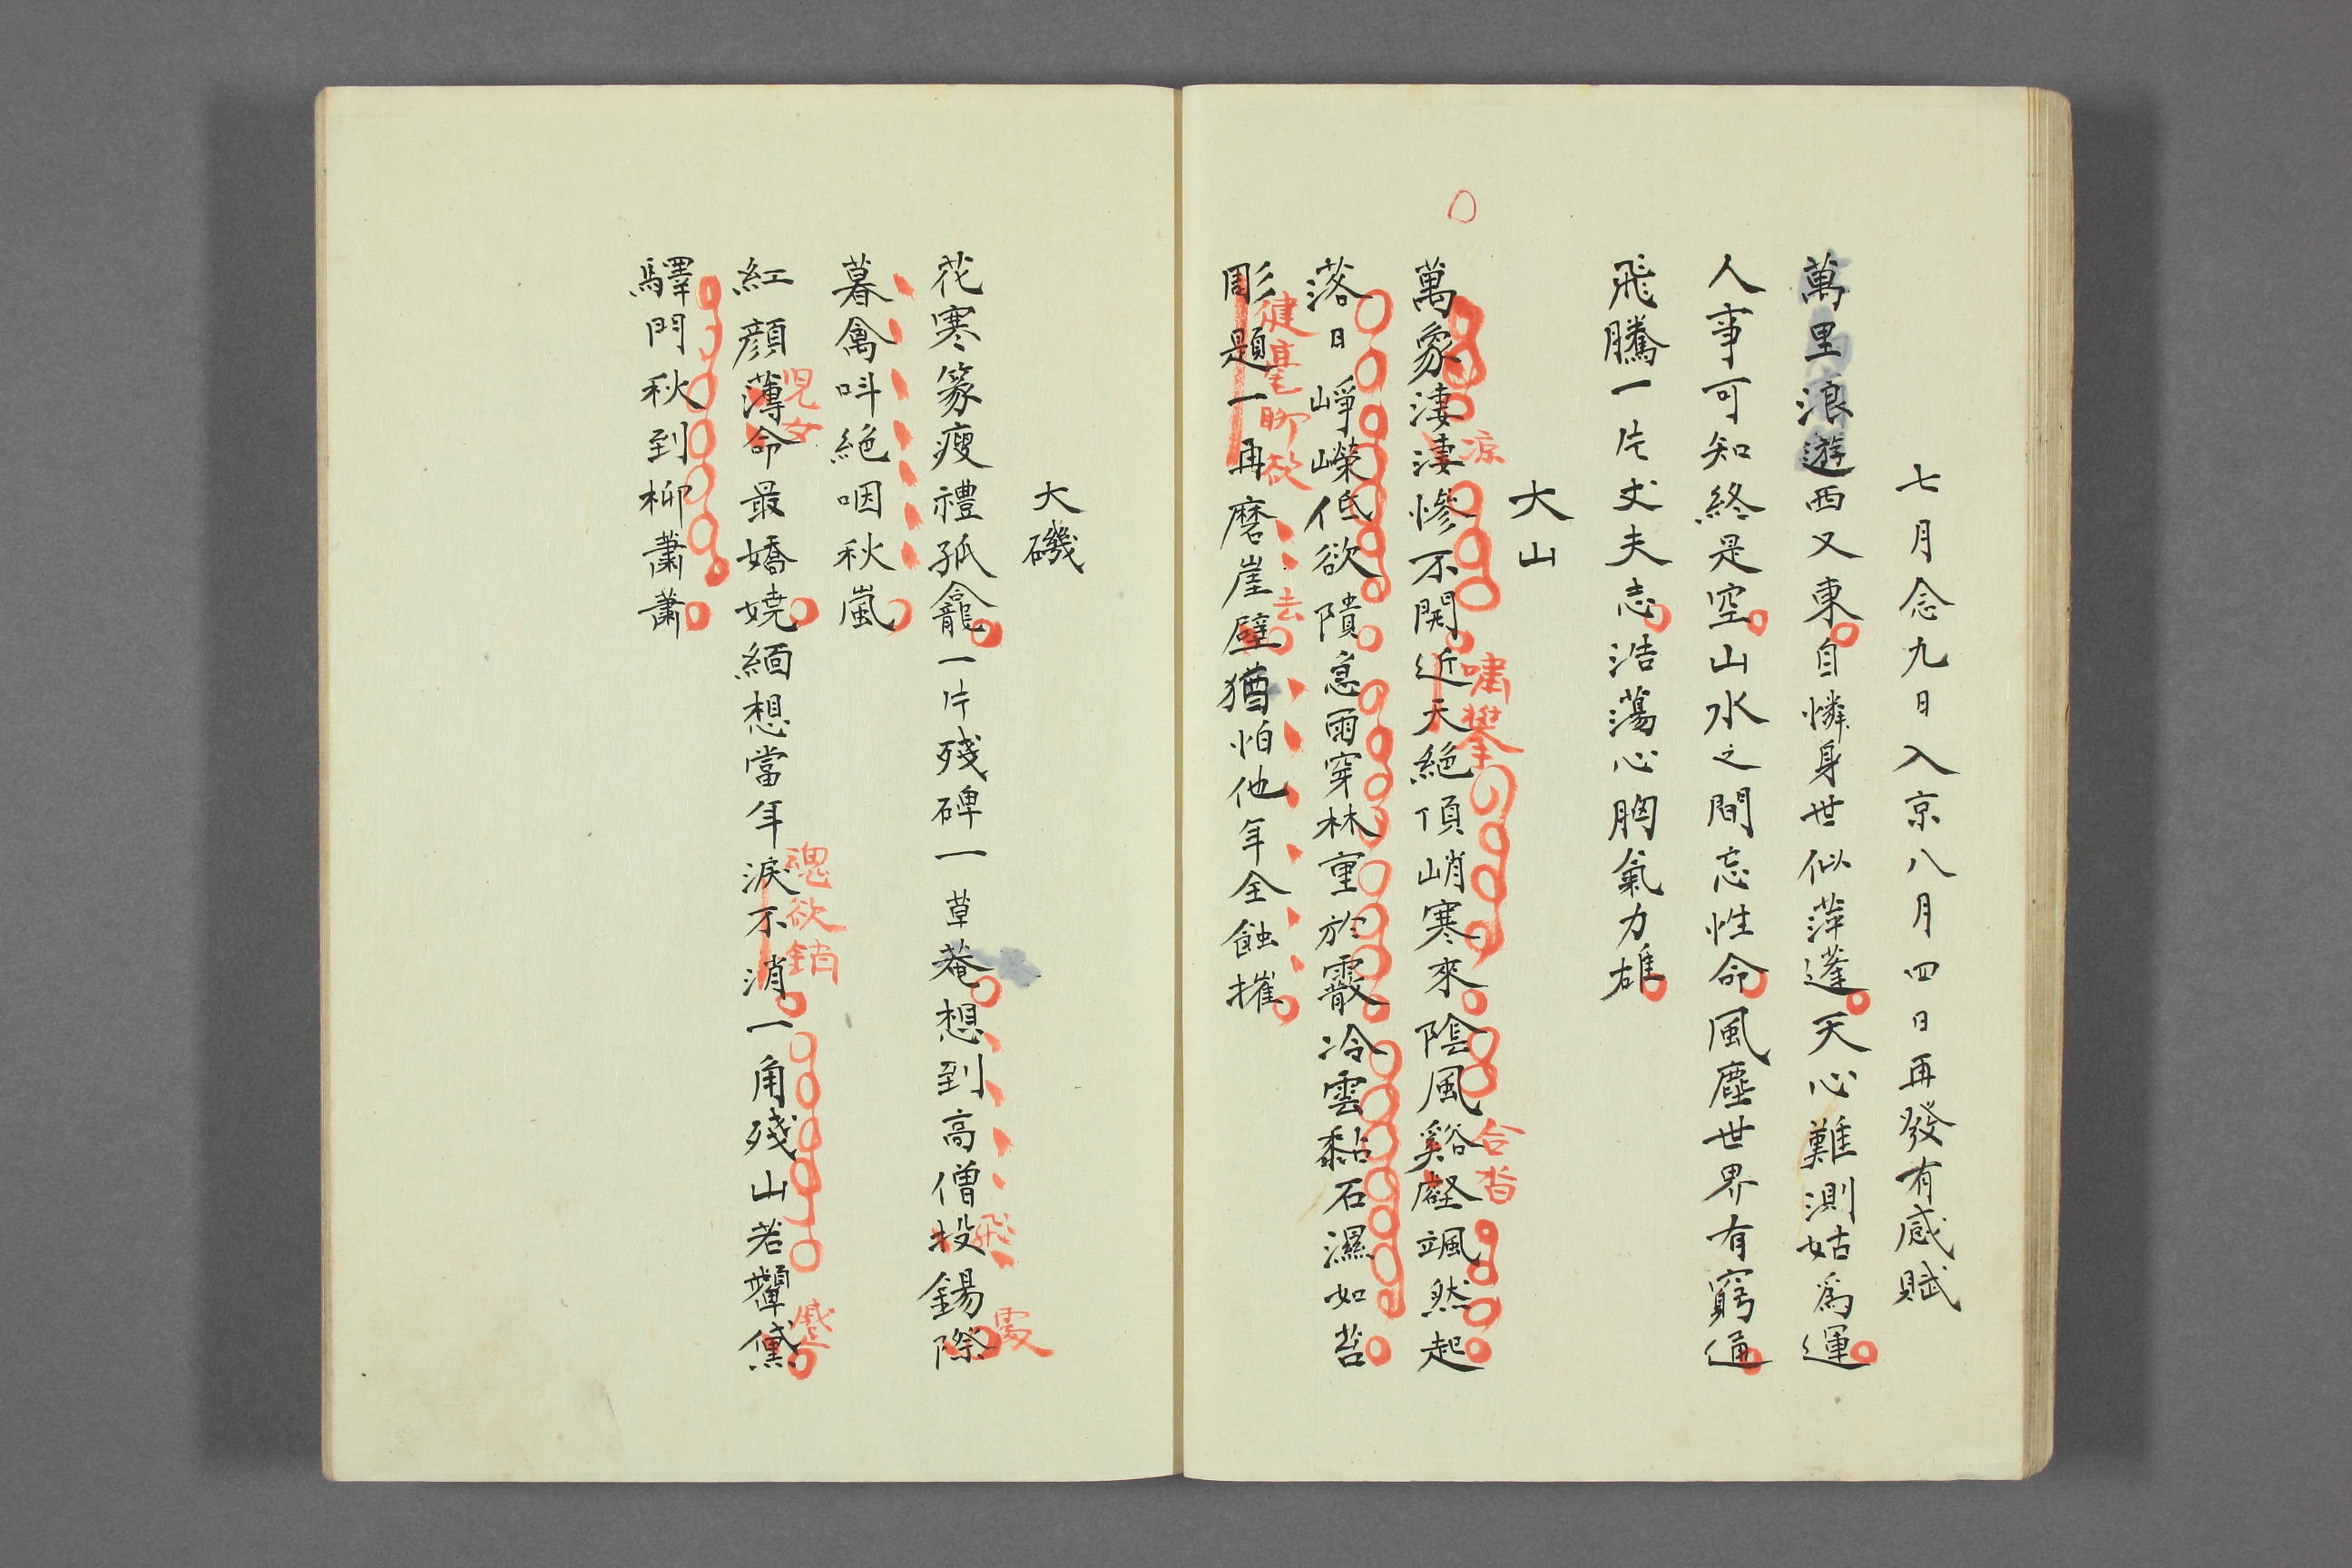 七月念九日入京八月四日再發有感賦
萬里浪遊西又東自憐身世似萍蓬天心難測姑爲運
人事可知終是空山水之間忘性命風塵世界有窮通
飛騰一片丈夫志浩蕩心胸氣力雄
大山
萬象淒淒慘不開近天絕頂峭寒來陰風谿壑颯然起
涼
嘯攀
合沓
落日崢嶸低欲隤急雨穿林重於霰冷雲黏石濕如苔
彫題一再磨崖壁猶怕他年全蝕摧
健毫聊欲
去
大磯
花寒篆瘦禮孤龕一片殘碑一草菴想到高僧投錫際
飛
處
暮禽呌絕咽秋嵐
紅顏薄命最嬌嬈緬想當年淚不消一角殘山若顰黛
児女
魂欲銷
蹙
驛門秋到柳蕭蕭